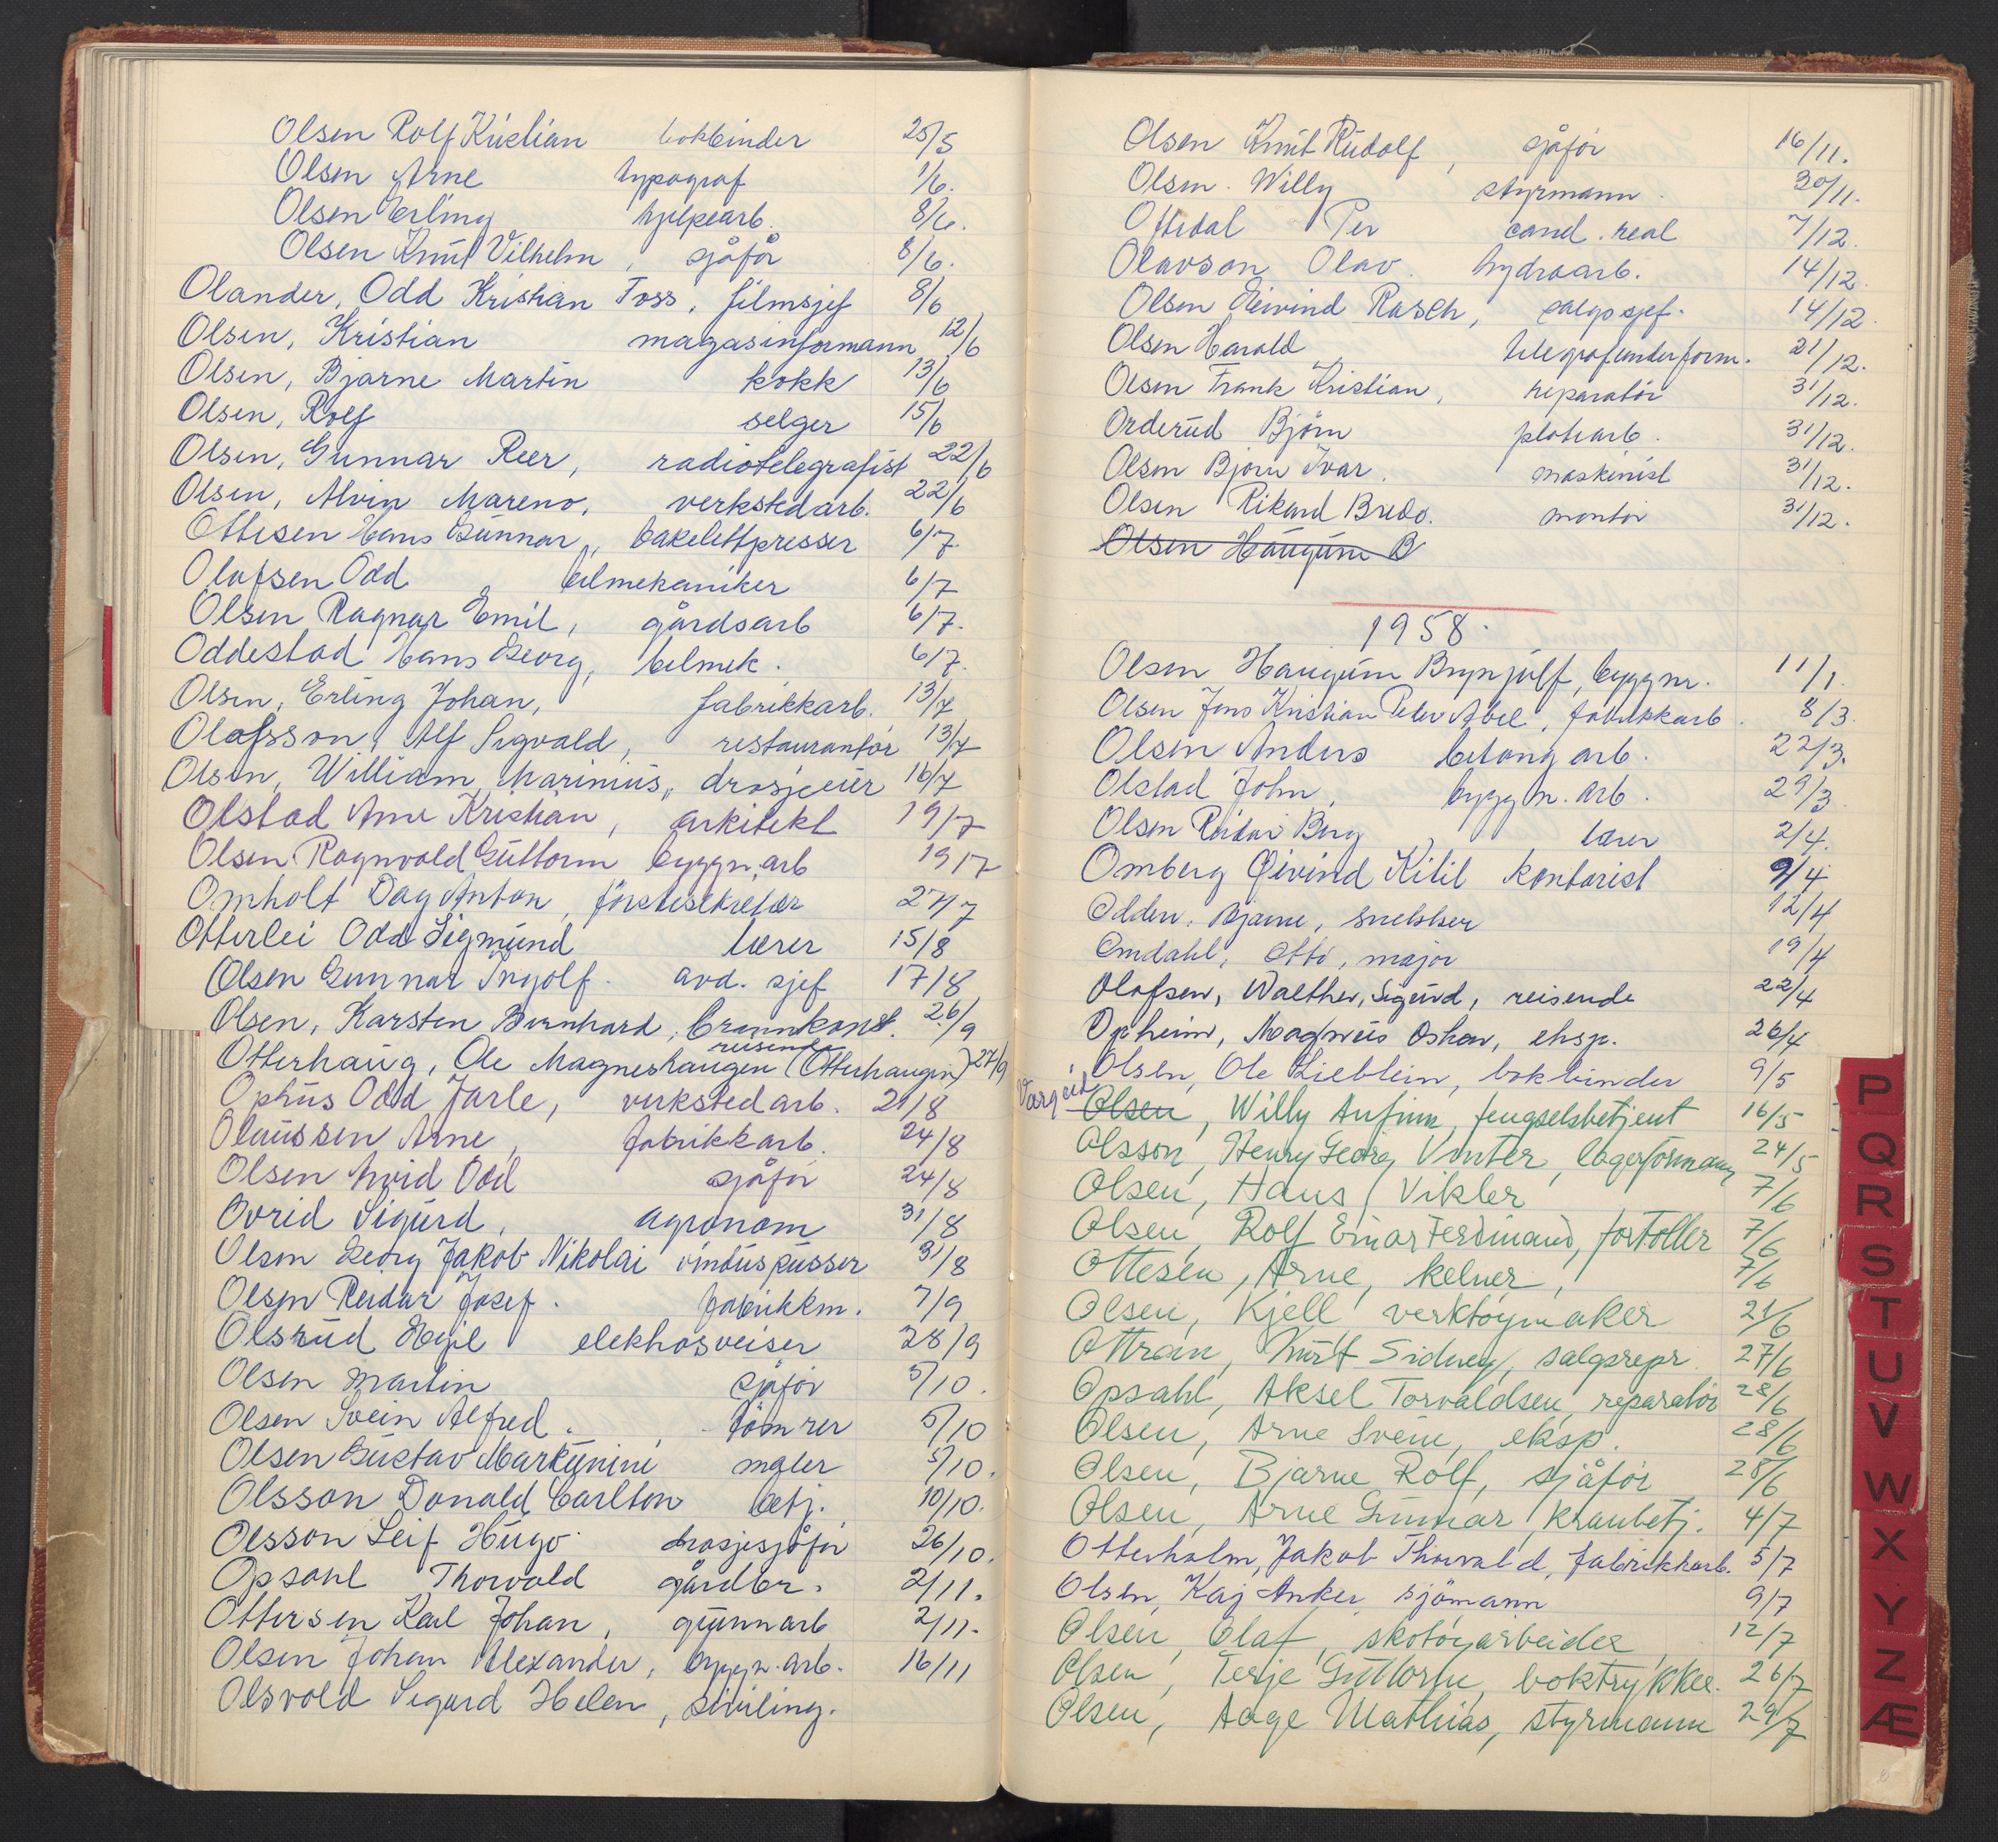 Olsen Rolf Kristian bokbinder 25/5
Olsen Arne typograf 1/6.
Olsen Erling hjelpearb. 8/6.
Olsen Knut Vilhelm, sjåfør 8/6.
Olander, Odd Kristian Foss, filmsjef 8/6
Olsen, Kristian magasinformann 12/6
Olsen, Bjarne Martin kokk 13/6
Olsen, Rolf selger 15/6
Olsen, Gunnar Reer, radiotelegrafist 22/6
Olsen, Alvin Mareno, verkstedarb. 22/6
Ottesen Hans Gunnar, bakelittpresser 6/7.
Olafsen Odd bilmekaniker 6/7
Olsen Ragnar Emil, gårdsarb 6/7.
Oddestad Hans Georg, bilmek. 6/7.
Olsen, Erling Johan, fabrikkarb. 13/7
Olafsson, Alf Sigvald, restauratør 13/7
Olsen, William Marinius, drosjeeier 16/7
Olstad Arne Kristian, arkitekt 19/7
Olsen Ragnvald Guttorm byggn.arb 19/7
Omholt Dag Anton, førstesekretær 27/7
Otterlei Odd Sigmund lærer 15/8
Olsen Gunnar Ingolf. avd. sjef 17/8
Olsen, Karsten Bernhard, brannkonst. 26/9
Otterhaug, Ole Magneshaugen (Otterhaugen) reisende 27/9
Ophus Odd Jarle, verkstedarb. 21/8
Olaussen Arne, fabrikkarb. 24/8
Olsen Arvid Odd sjåfør 24/8
Ovrid Sigurd, agronom 31/8
Olsen Georg Jakob Nikolai vinduspusser 31/8
Olsen Reidar Josef. fabrikkm. 7/9
Olsrud Egil elektrosveiser 28/9
Olsen Martin sjåfør 5/10.
Olsen Svein Alfred. tømrer 5/10
Olsen Gustav maler 5/10.
Olsson Donald Carlton betj. 10/10.
Olsson Leif Hugo drosjesjåfør 26/10.
Opsahl Thorvald gårdbr. 2/11.
Ottersen Karl Johan, grunnarb 2/11.
Olsen Johan Alexander, byggn.arb. 16/11
Olsvold Sigurd Helen, siviling.
Olsen Knut Rudolf, sjåfør 16/11.
Olsen. Willy styrmann. 30/11.
Oftedal Per cand. real 7/12.
Olavson Olav. hydroarb. 14/12.
Olsen Eivind Rasch, salgssjef. 14/12.
Olsen Harald, telegrafunderform. 21/12.
Olsen Frank Kristian, reparatør 31/12.
Orderud Bjørn platearb. 31/12.
Olsen Bjørn Ivar. maskinist 31/12.
Olsen Rikard Bredo. montør 31/12.
Olsen Haugum B
1958.
Olsen Haugum Brynjulf, byggm. 11/1.
Olsen Jens Kristian Peter Abel, fabrikkarb. 8/3.
Olsen Anders betongarb. 22/3.
Olstad John, byggn. arb. 29/3.
Olsen Reidar Berg lærer 2/4.
Omberg Øivind Kitil kontorist 9/4
Odden. Bjarne, 12/4
Omdahl, Otto, major 19/4
Olafsen, Walther, Sigurd, reisende 22/4
Opheim, Magnus Oskar, eksp. 26/4
Olsen, Ole Lieblein, bokbinder 9/5
Vargeid
Olsen, Willy Anfinn, fengselsbetjent 16/5
Olsson, Henry Georg Vinter, lagerformann 24/5
Olsen, Hans Vikler 7/6
Olsen, Rolf Einar Ferdinand, fortoller 7/6
Ottesen, Arne, kelner, 7/6
Olsen, Kjell verktøymaker 21/6
Ottran, Kurt Sidney, salgsrepr. 27/6
Opsahl, Aksel Torvaldsen, reparatør 28/6
Olsen, Arne Svein, eksp. 28/6
Olsen, Bjarne Rolf, sjåfør 28/6
Olsen, Arne Gunnar, kranbetj. 4/7
Otterholm, Jakob Thorvald, fabrikkarb. 5/7
Olsen, Kaj Anker, sjømann 9/7
Olsen, Olaf, skotøyarbeider 12/7
Olsen, Terje Guttorm, boktrykker. 26/7
Olsen, Aage Mathias, styrmann 29/7
P
Q
R
S
T
U
V
W
X
Y
Z
Æ